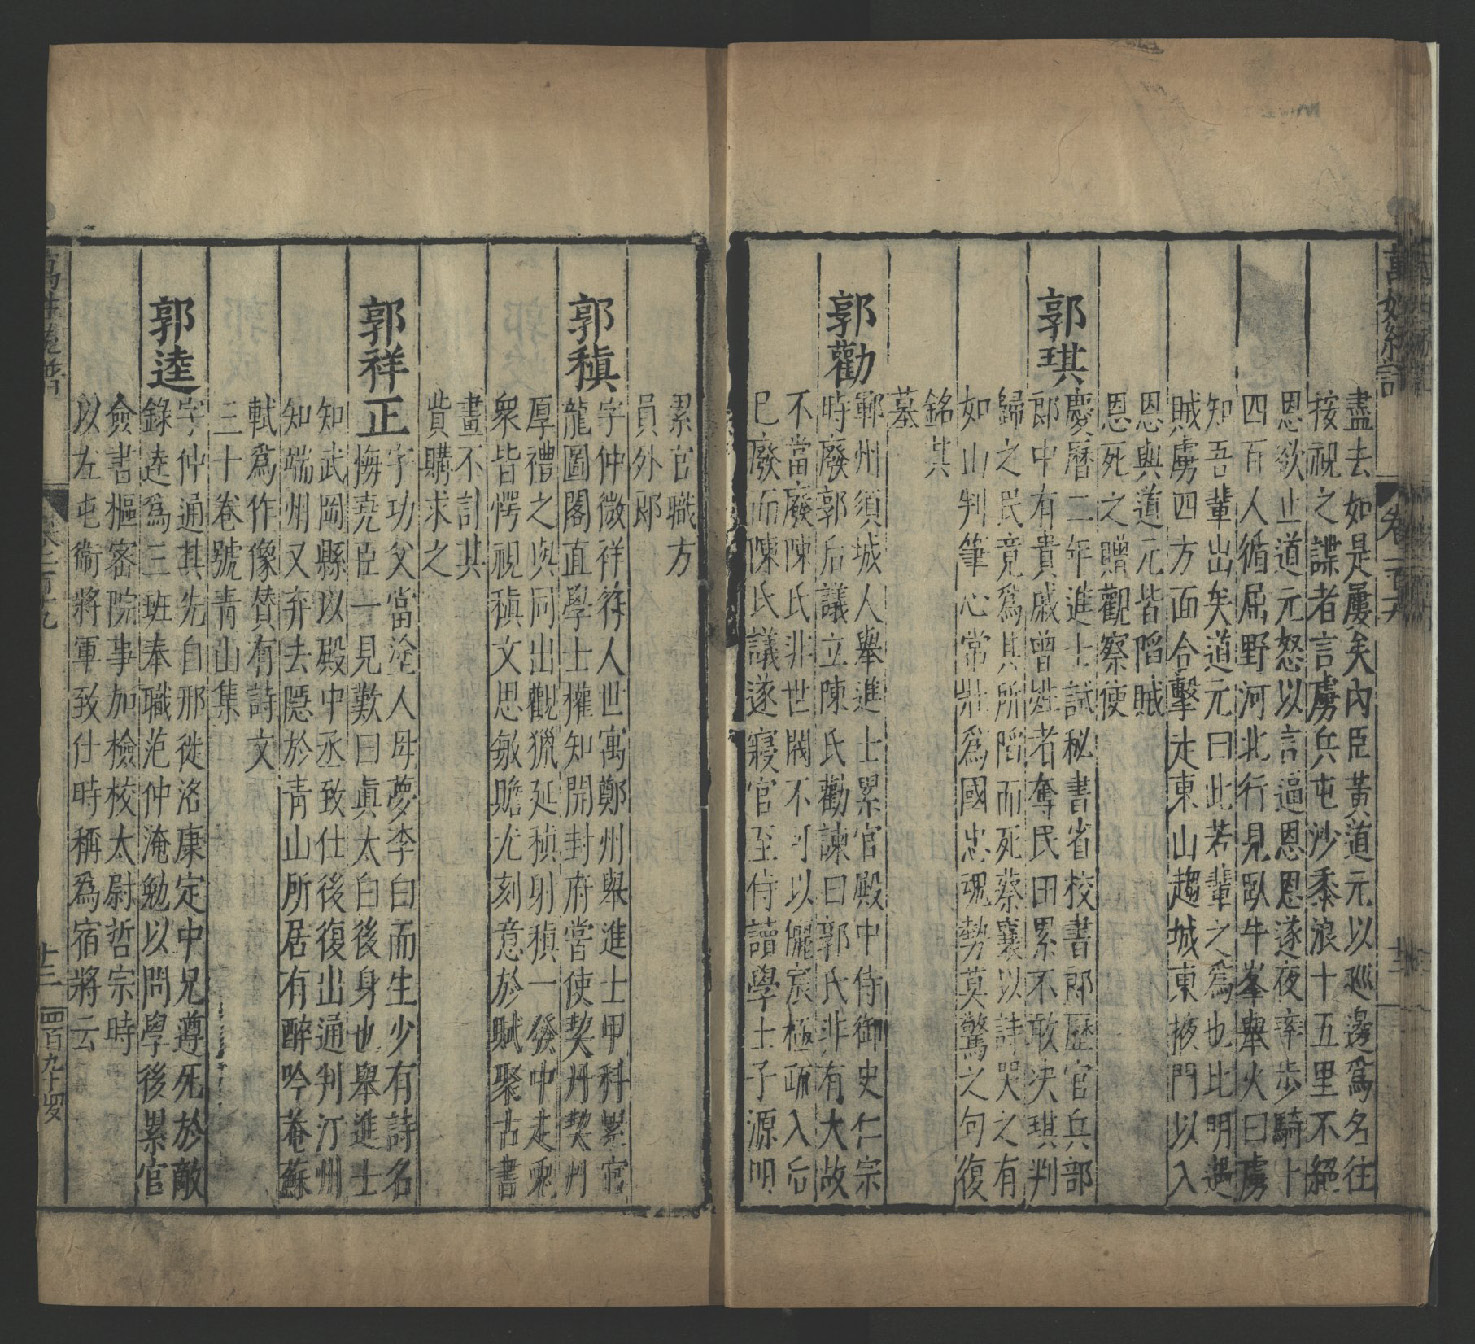 萬姓統譜
卷一百十九
盡去如是屢矣內臣黃道元以巡邊爲名往
按視之諜者言虜兵屯沙黍浪十五里不絕
恩欲止道元怒以言逼恩恩遂夜率步騎十
四百人循屈野河北行見臥牛峯舉火曰虜
知吾輩出矣道元曰此若輩之爲也比明遇
賊虜四方面合擊走東山趨城東掖門以入
恩與道元皆陷賊
恩死之贈觀察使
郭琪
慶曆二年進士試秘書省校書郎歷官兵部
郎中有貴戚曾姓者奪民田累不敢決琪判
歸之民竟爲其所陷而死蔡襄以詩哭之有
如山判筆心常壯爲國忠魂勢莫驚之句復
銘其
墓
郭勸
鄆州須城人舉進士累官殿中侍御史仁宗
時廢郭后議立陳氏勸諫曰郭氏非有大故
不當廢陳氏非世閥不可以儷宸極疏入后
已廢而陳氏議遂寢官至侍讀學士子源明
累官職方
員外郎
郭稹
字仲微祥符人世寓鄭州舉進士甲科累官
龍圖閣直學士權知開封府嘗使契丹契丹
厚禮之與同出觀獵延稹射稹一發中走兎
衆皆愕視稹文思敏贍尤刻意於賦聚古書
畫不計其
貲購求之
郭祥正
字功父當塗人母夢李白而生少有詩名
梅堯臣一見歎曰眞太白後身也舉進士
知武岡縣以殿中丞致仕後復出通判汀州
知端州又弃去隱於青山所居有醉吟菴蘇
軾爲作像贊有詩文
三十卷號青山集
郭逵
字仲通其先自邢徙洛康定中兄遵死於敵
錄逵爲三班奉職范仲淹勉以問學後累官
僉書樞密院事加檢校太尉哲宗時
以左屯衛將軍致仕時稱爲宿將云
萬姓統譜
卷一百十九
十三
四百九十四